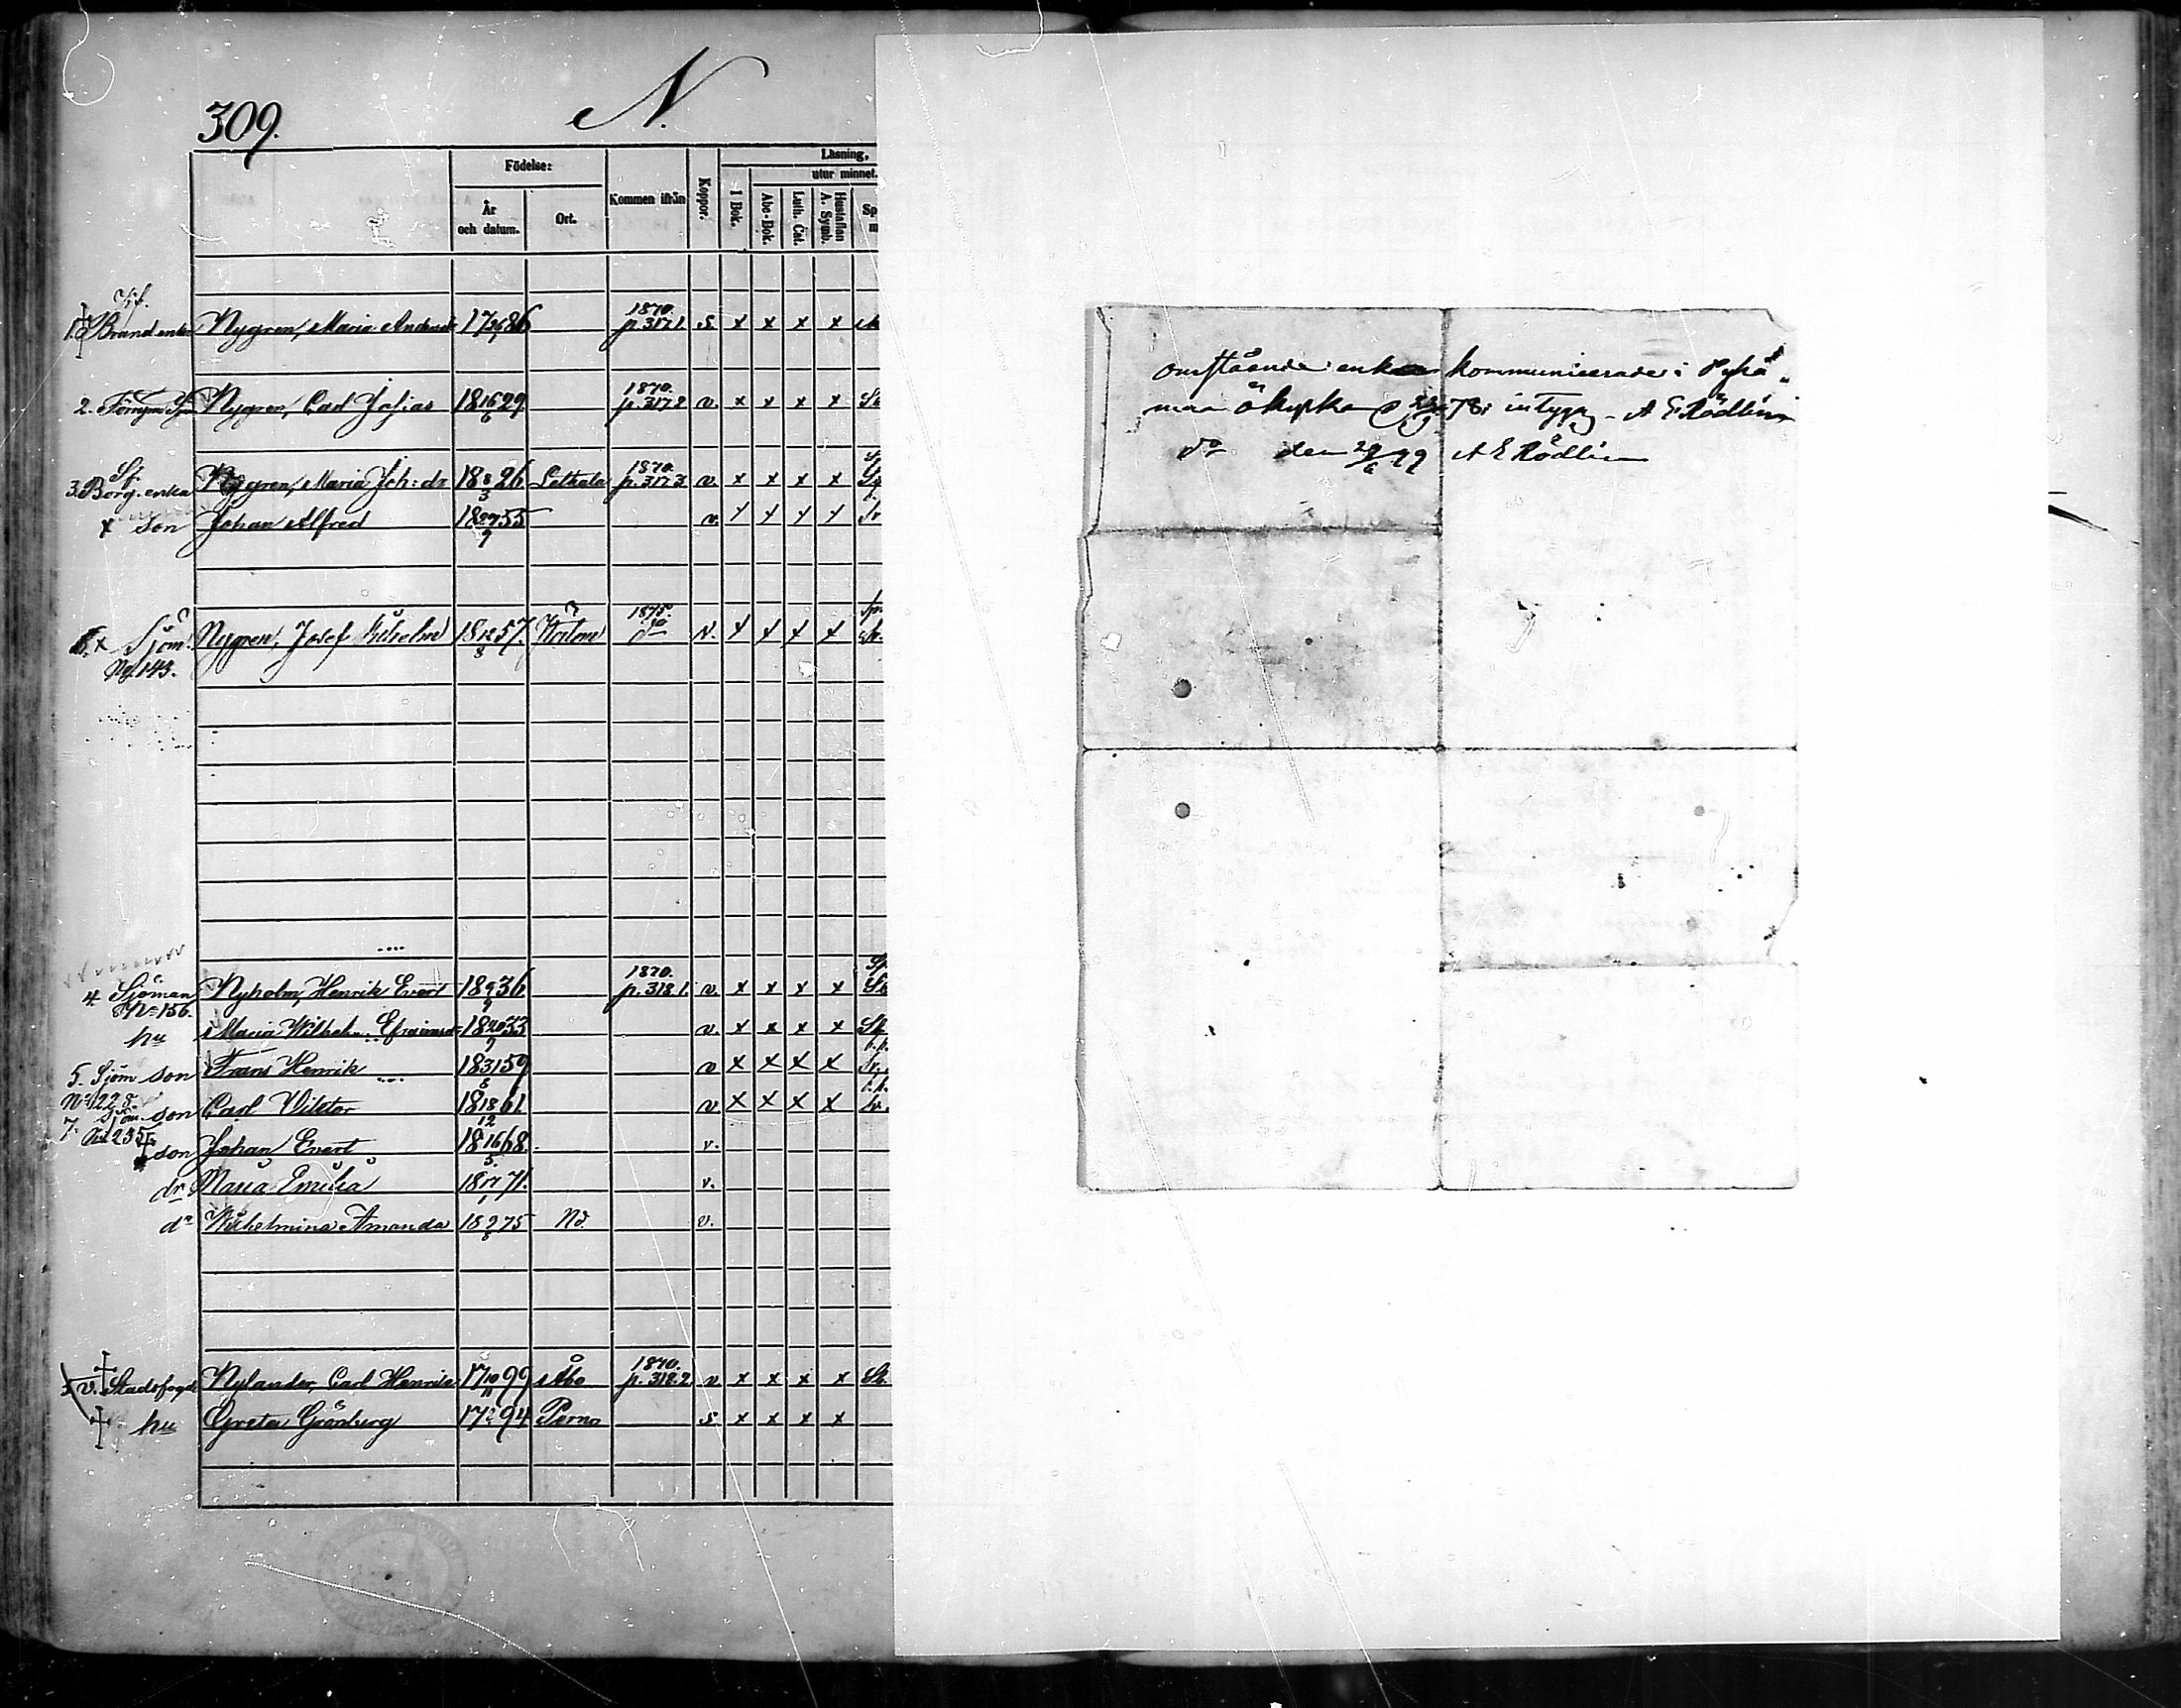 309.
N.
Födelse:
Läsning,
utur minnet.
År och datum.
Ort.
Kommen ifrån
Koppor.
I Bok.
Abc-Bok.
Luth. Cat.
Hustaflan A. Symb.
1. Brand.enka Nygren, Maria 17 86 1870. p. 317.1 s. x x x x
2. Nygren, Carl Josias 18 16/6 29 1870. p. 317.2 v. x x x x
3. Borg. enka Nygren, Maria Joh:dr 18 8/3 26 Letala 1870. p. 317.3 v. x x x x
x son Johan Alfred 18 55 v. x x x x
6. x Sjöm. Nygren, Josef Wilhelm 18 12/8 57. 1875. N. x x x x
No. 143.
4. Sjöman Nyholm, Henrik Evert 18 9/9 36 1870. p. 318.1. v. x x x x
No 156.
hu Maria Wilhelm. Efraimsdr 18 33 v. x x x x
5. Sjöm son Frans Henrik 18 31/8 59 v x x x x
No 228.
7. Sjöm. son Carl Viktor 18 18/12 61 v x x x x
No 235
son Johan Evert 18 16/5 68. v.
dr Maria Emilia 18 17/1 71. v.
dr Wilhelmina Amanda 18 9/8 75 Nd. v.
v. Stadsfogde Nylander, Carl Henrik 17 10/11 99 Åbo 1870. p. 318.2 v. x x x x
hu Greta Grönberg 17 94 Perno s x x x x
omstående enka kommunicerade i Pyhä
maa ökyrka 78: intygar A E Rödlin
do den 29/6 79 A E Rödlin